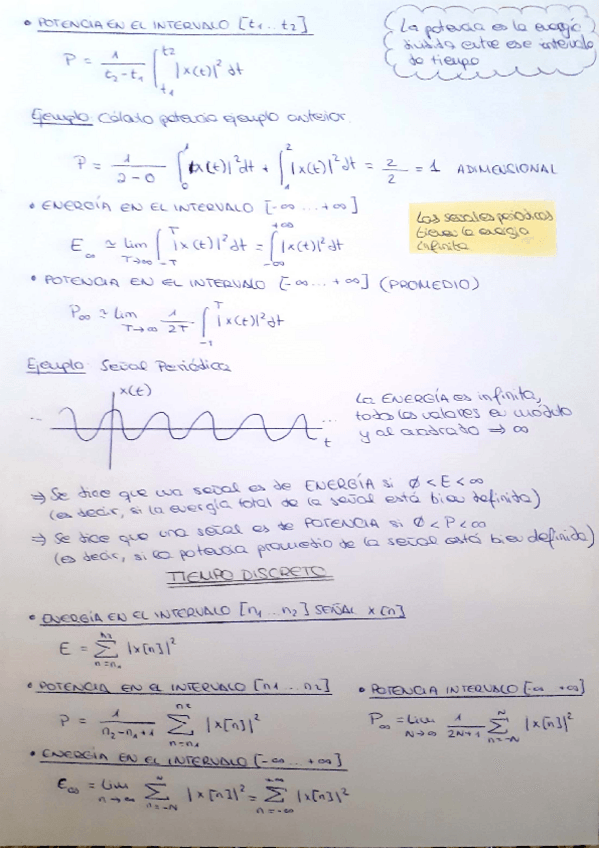 • POTENCIA EN EL INTERVALO [t1..t2]
P = 1/(t2-t1) ∫_{t1}^{t2} |x(t)|² dt
La potencia es la energía
dividida entre ese intervalo
de tiempo
Ejemplo: Cálculo potencia ejemplo anterior.
P = 1/(2-0) ∫_0^1 |x(t)|² dt + ∫_1^2 |x(t)|² dt = 2/2 = 1 ADIMENSIONAL
• ENERGÍA EN EL INTERVALO [-∞...+∞]
E∞ ≃ lim_{T→∞} ∫_{-T}^{T} |x(t)|² dt = ∫_{-∞}^{+∞} |x(t)|² dt
Las señales periódicas
tienen la energía
infinita
• POTENCIA EN EL INTERVALO [-∞...+∞] (PROMEDIO)
P∞ ≃ lim_{T→∞} 1/2T ∫_{-T}^{T} |x(t)|² dt
Ejemplo: Señal Periódica
x(t)
... ...
t
La ENERGÍA es infinita,
todos los valores en módulo
y al cuadrado ⇒ ∞
⇒ Se dice que una señal es de ENERGÍA si Ø < E < ∞
(es decir, si la energía total de la señal está bien definida)
⇒ Se dice que una señal es de POTENCIA si Ø < P < ∞
(es decir, si la potencia promedio de la señal está bien definida)
TIEMPO DISCRETO
• ENERGÍA EN EL INTERVALO [n1..n2] SEÑAL x[n]
E = ∑_{n=n1}^{n2} |x[n]|²
• POTENCIA EN EL INTERVALO [n1...n2]
P = 1/(n2-n1+1) ∑_{n=n1}^{n2} |x[n]|²
• POTENCIA INTERVALO [-∞ +∞]
P∞ = lim_{N→∞} 1/(2N+1) ∑_{n=-N}^{N} |x[n]|²
• ENERGÍA EN EL INTERVALO [-∞...+∞]
E∞ = lim_{n→∞} ∑_{n=-N}^{N} |x[n]|² = ∑_{n=-∞}^{+∞} |x[n]|²